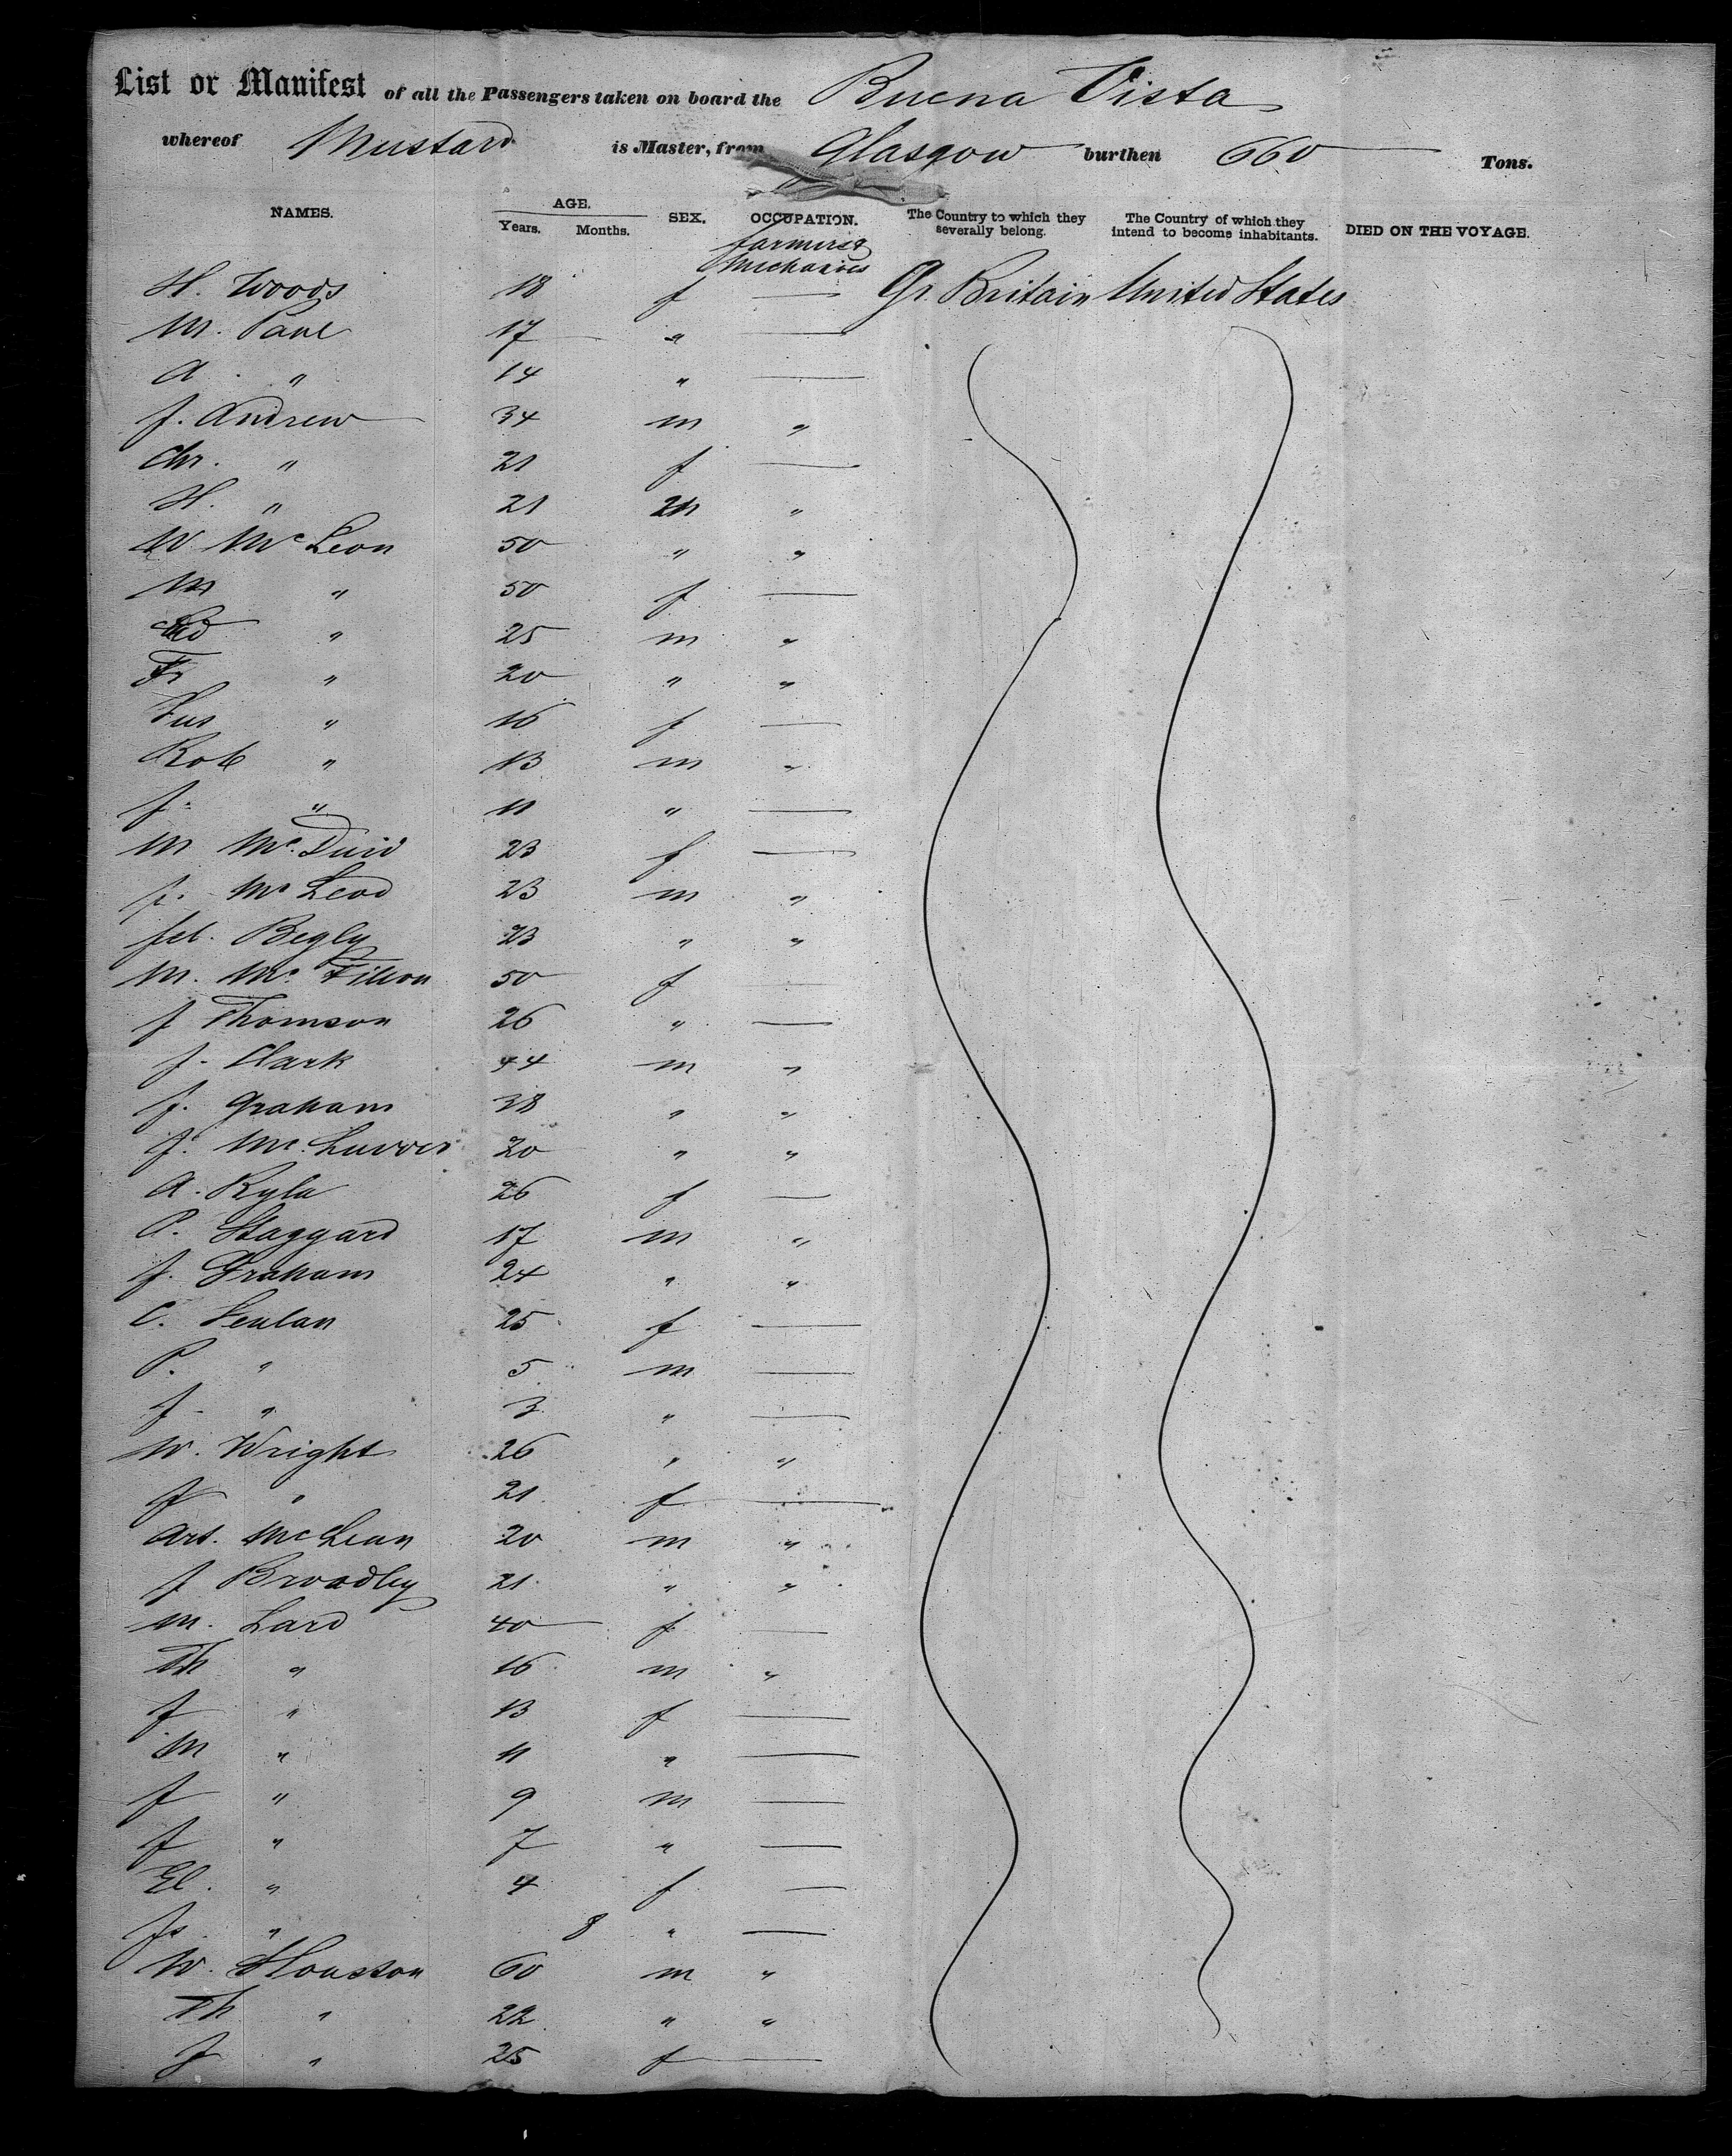 List or Manifest of all the Passengers taken on board the Buena Vista
whereof Mustard is Master, from Glasgow burthen 660 Tons.
NAMES. AGE. Years. Months. SEX. OCCUPATION. The Country to which they severally belong. The Country of which they intend to become inhabitants. DIED ON THE VOYAGE.
Farmers &
Mechanics
H. Woods 18 f — Gr. Britain United States
M. Paul 17 " —
A. " 14 " —
J. Andrew 34 m "
Chr. " 21 f —
H. " 21 m "
W Mc Leon 50 " "
M " 50 f —
" 25 m "
Fr " 20 " "
" 16 f —
Rob " 13 m "
J. " 11 " —
M Mc. Duid 23 f —
J. Mc Leod 23 m "
Begly 23 " "
M. Mc. 50 f —
J Thomson 26 " —
J. Clark 44 m "
J. Graham 38 " "
J. Mc. 20 " "
A. Kyla 26 f —
P. Staggard 17 m "
J. Graham 24 " "
C. 25 f —
P. " 5 m —
J. " 3 " —
W. Wright 26 " "
J " 21 f —
Art. Mc Lean 20 m "
J Broadley 21 " "
M. Lard 40 f —
Th " 16 m "
J " 13 f —
M " 11 " —
J " 9 m —
J " 7 " —
El. " 4 f —
Js " 8 " —
W. Houston 60 m "
Th " 22 " "
J " 25 f —